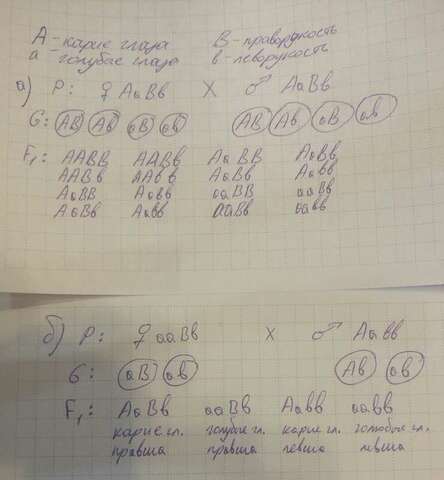 А - карие глаза В - праворукость
а - голубые глаза в - леворукость
а) Р: ♀ АаВв X ♂ АаВв
G: АВ Ав аВ ав АВ Ав аВ ав
F₁: ААВВ ААВв АаВВ АаВв
ААВв ААвв АаВв Аавв
АаВВ АаВв ааВВ ааВв
АаВв Аавв ааВв аавв
б) Р: ♀ ааВв X ♂ Аавв
G: аВ ав Ав ав
F₁: АаВв ааВв Аавв аавв
карие гл. голубые гл. карие гл. голубые гл.
правша правша левша левша